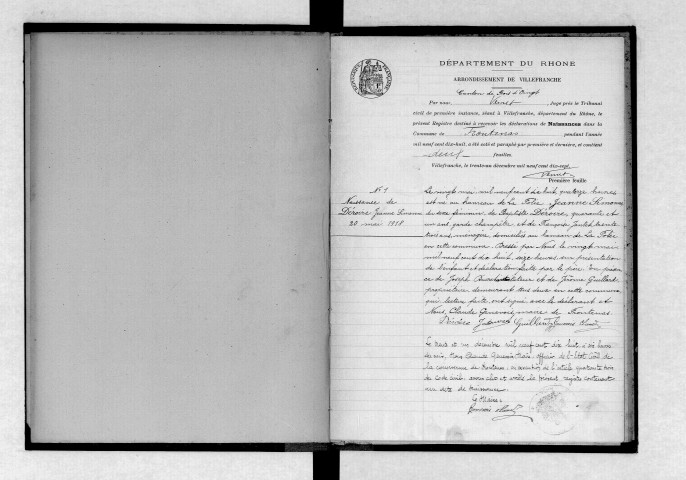 DÉPARTEMENT DU RHONE
ARRONDISSEMENT DE VILLEFRANCHE
Canton de Bois d'Oingt
Par nous, Juge près le Tribunal
civil de première instance, séant à Villefranche, département du Rhône, le
présent Registre destiné à recevoir les déclarations de Naissances dans la
Commune de Frontenas pendant l'année
mil neuf cent dix-huit, a été coté et paraphé par première et dernière, et contient
deux feuilles.
Villefranche, le trente-un décembre mil neuf cent dix-sept
Première feuille
N° 1
Naissance de
Déroire Jeanne Simone
20 mai 1918
Le vingt mai mil neuf cent dix huit, quatorze heures
est né au hameau de la Jeanne Simone
du sexe féminin, de Baptiste Déroire, quarante et
un ans, garde champêtre, et de Françoise trente
trois ans, ménagère, domiciliés au hameau de la
en cette commune. Dressé par Nous le vingt mai
mil neuf cent dix huit, seize heures sur présentation
de l'enfant et déclaration faite par le père. En présen
ce de Joseph et de Jérôme Guillard
propriétaire demeurant tous deux en cette commune,
qui, lecture faite, ont signé avec le déclarant et
Nous, Claude Genevois, maire de Frontenas.
Déroire
Le trente et un décembre mil neuf cent dix huit, à six heures
du soir, Nous Claude Genevois Maire, officier de l'Etat Civil de
la commune de Frontenas, en exécution de l'article quarante trois
du code civil, avons clos et arrêté le présent registre contenant
un acte de naissance.
Le Maire: